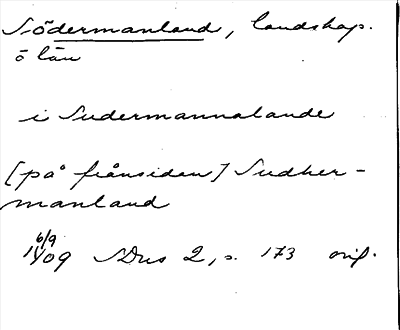 Södermanland, landskap.
o län
i Sudermannalande
[på frånsidan] Sudher-
manland
6/9
1409 SDns 2, s. 173 orig.